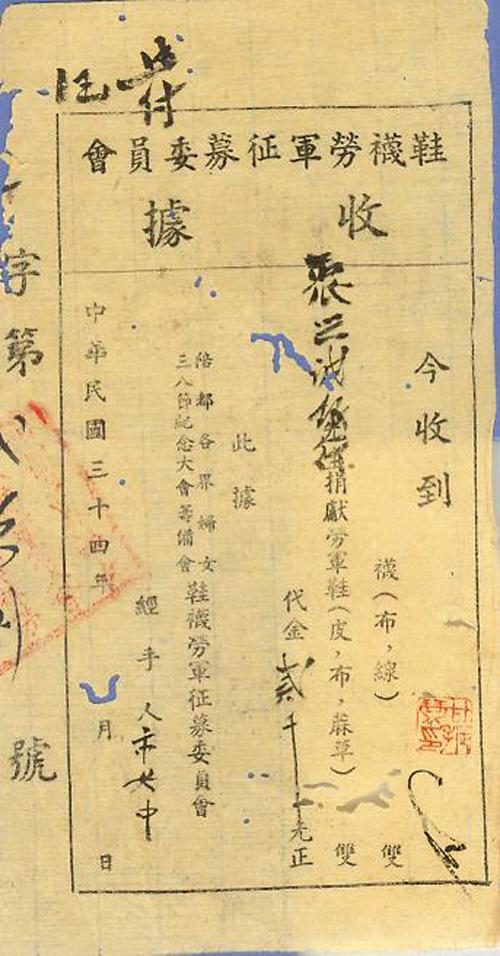 鞋襪勞軍征募委員會
收據
今收到
襪(布,線) 雙
捐獻勞軍鞋(皮,布,蔴草) 雙
代金貳千 元正
此據
陪都各界婦女
三八節紀念大會籌備會
鞋襪勞軍征募委員會
經手人市女中
中華民國三十四年 月 日
字第 號